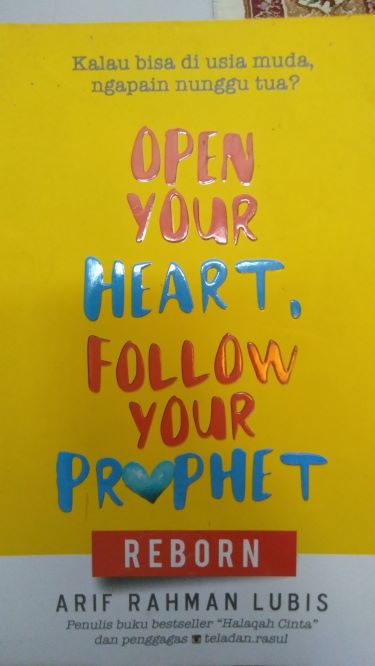 Kalau bisa di usia muda,
ngapain nunggu tua?
OPEN
YOUR
HEART,
FOLLOW
YOUR
PROPHET
REBORN
ARIF RAHMAN LUBIS
Penulis buku bestseller "Halaqah Cinta"
dan penggagas teladan.rasul